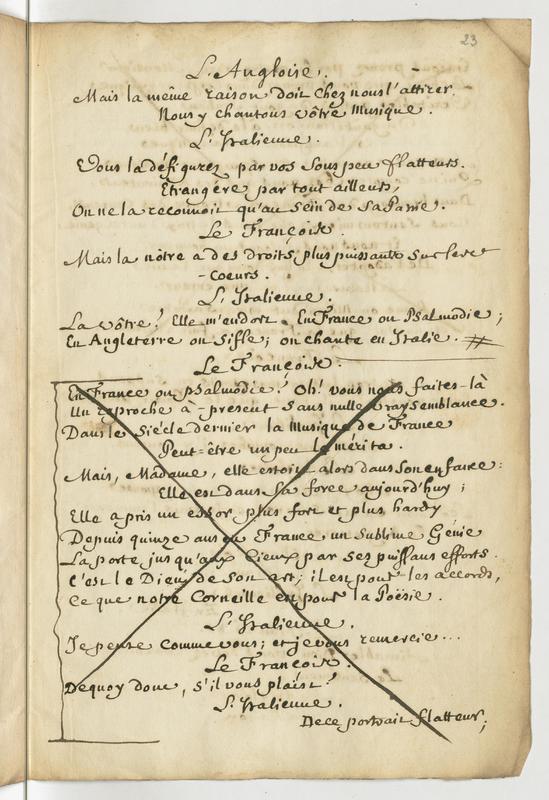 23
L'Angloise.
Mais la même raison doit chez nous l'attirer.
Nous y chantons vôtre Musique.
L'Italienne.
Vous la défigurez par vos sons peu flatteurs.
Etrangère par tout ailleurs,
On ne la reconnoit qu'au sein de sa Patrie.
Le François.
Mais la nôtre a des droits plus puissants sur les
- coeurs.
L'Italienne.
La vôtre! Elle m'endort. En France on Psalmodie;
En Angleterre on siffle; on chante en Italie.
Le François.
En France on psalmodie! Oh! vous nous faites-là
Un reproche à-present sans nulle vraysemblance.
Dans le siécle dernier la Musique de France
Peut-être un peu le mérita.
Mais, Madame, elle estoit alors dans son enfance:
Elle est dans sa force aujourd'huy;
Elle a pris un essor plus fort et plus hardy
Depuis quinze ans qu'en France un sublime Génie
La porte jusqu'aux Cieux par ses puissans efforts.
C'est le Dieu de son art; il est pour les accords,
Ce que notre Corneille est pour la Poësie.
L'Italienne.
Je pense comme vous; et je vous remercie...
Le François.
De quoy donc, s'il vous plaist?
L'Italienne.
De ce portrait flatteur;